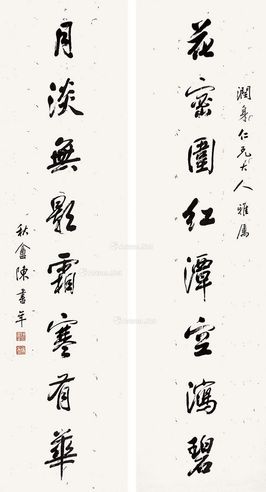 潤身仁兄大人雅属
花密圍紅潭空瀉碧
月淡無影霜寒有華
秋畬陳書年